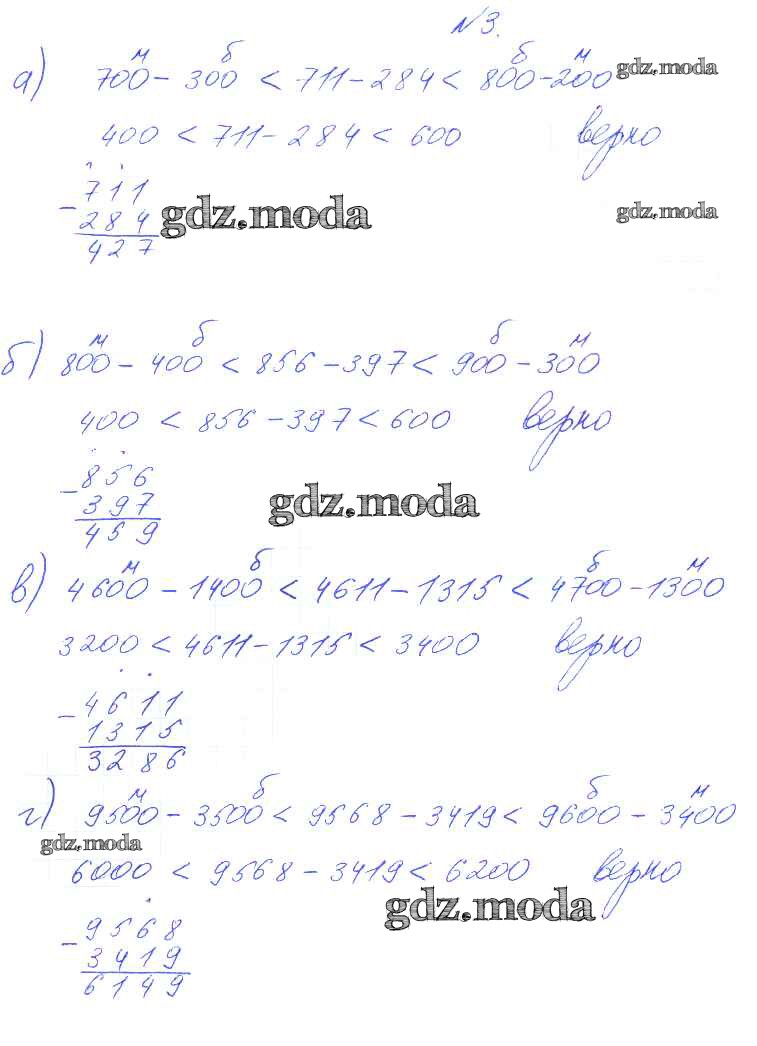 №3.
м б б м
а) 700 - 300 < 711 - 284 < 800 - 200 gdz.moda
400 < 711 - 284 < 600 верно
- 711
284 gdz.moda gdz.moda
427
м б б м
б) 800 - 400 < 856 - 397 < 900 - 300
400 < 856 - 397 < 600 верно
- 856
397 gdz.moda
459
м б б м
в) 4600 - 1400 < 4611 - 1315 < 4700 - 1300
3200 < 4611 - 1315 < 3400 верно
- 4611
1315
3286
м б б м
г) 9500 - 3500 < 9568 - 3419 < 9600 - 3400
gdz.moda
6000 < 9568 - 3419 < 6200 верно
gdz.moda
- 9568
3419
6149